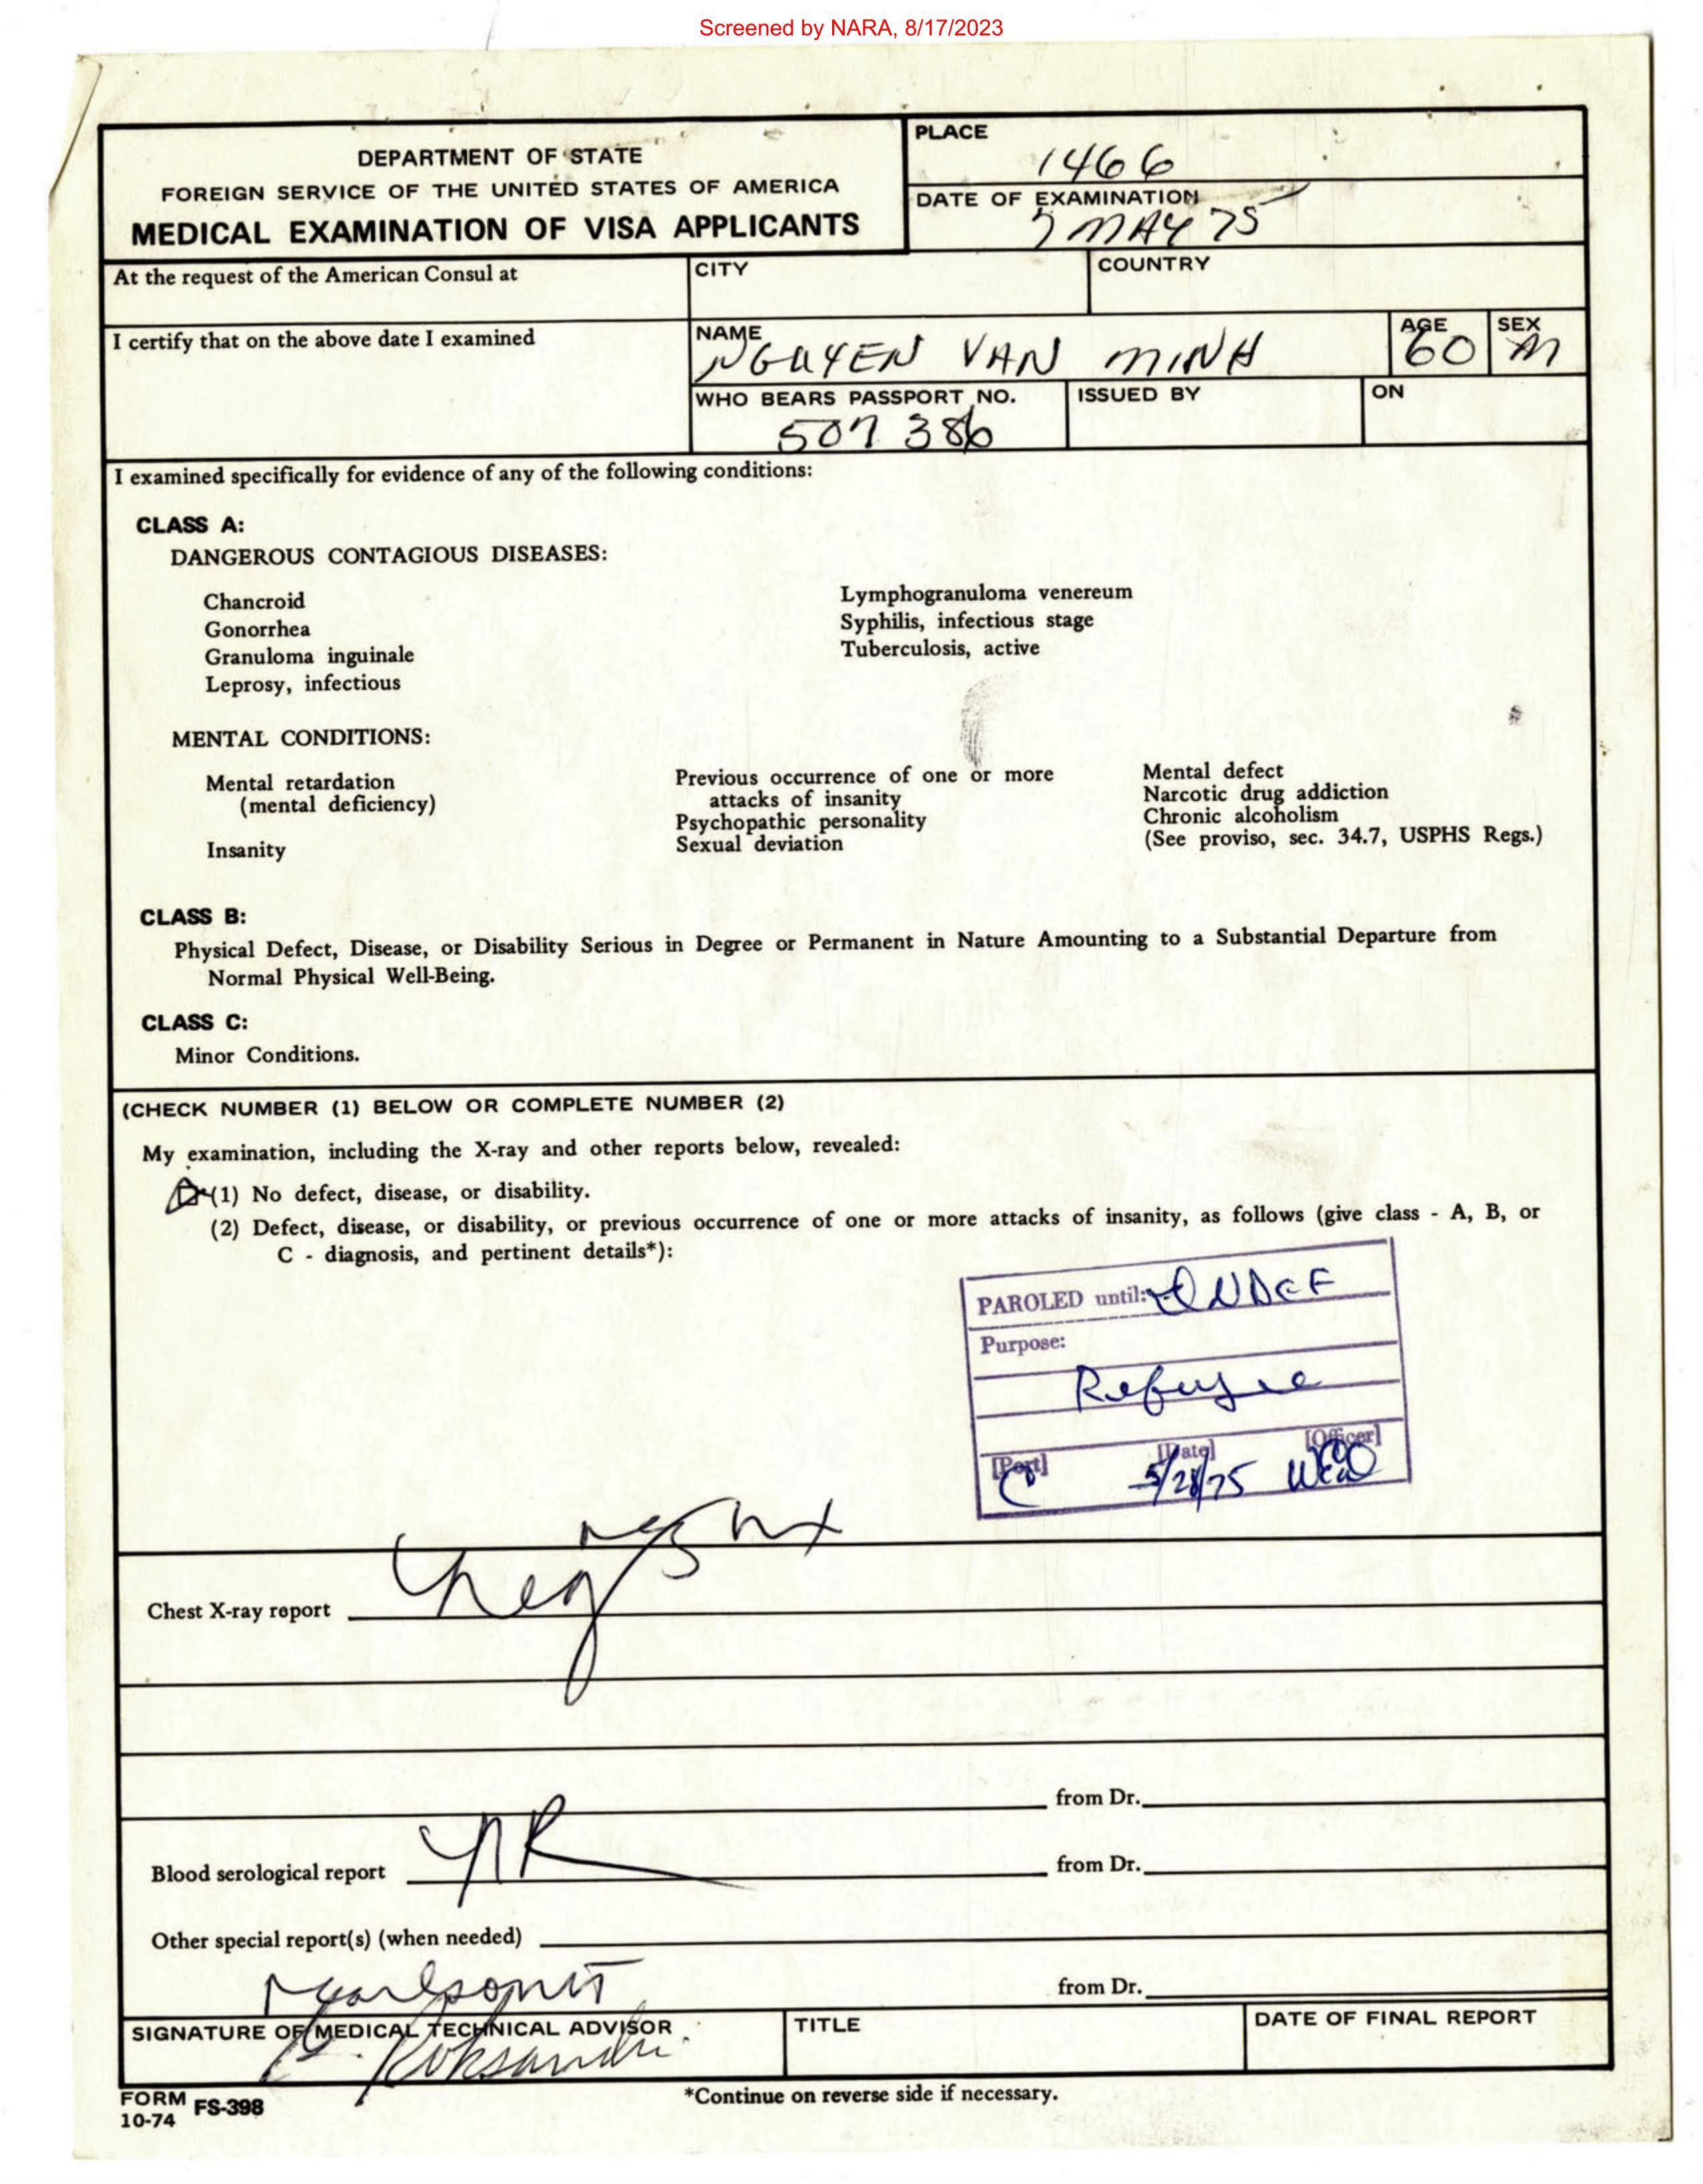 Screened by NARA, 8/17/2023
DEPARTMENT OF STATE
FOREIGN SERVICE OF THE UNITED STATES OF AMERICA
MEDICAL EXAMINATION OF VISA APPLICANTS
PLACE
1466
DATE OF EXAMINATION
MAY 75
At the request of the American Consul at
CITY
COUNTRY
I certify that on the above date I examined
NAME
NGUYEN VAN MINH
AGE
60
SEX
M
WHO BEARS PASSPORT NO.
507 386
ISSUED BY
ON
I examined specifically for evidence of any of the following conditions:
CLASS A:
DANGEROUS CONTAGIOUS DISEASES:
Chancroid
Gonorrhea
Granuloma inguinale
Leprosy, infectious
Lymphogranuloma venereum
Syphilis, infectious stage
Tuberculosis, active
MENTAL CONDITIONS:
Mental retardation
(mental deficiency)
Insanity
Previous occurrence of one or more
attacks of insanity
Psychopathic personality
Sexual deviation
Mental defect
Narcotic drug addiction
Chronic alcoholism
(See proviso, sec. 34.7, USPHS Regs.)
CLASS B:
Physical Defect, Disease, or Disability Serious in Degree or Permanent in Nature Amounting to a Substantial Departure from
Normal Physical Well-Being.
CLASS C:
Minor Conditions.
(CHECK NUMBER (1) BELOW OR COMPLETE NUMBER (2)
My examination, including the X-ray and other reports below, revealed:
(1) No defect, disease, or disability.
(2) Defect, disease, or disability, or previous occurrence of one or more attacks of insanity, as follows (give class - A, B, or
C - diagnosis, and pertinent details*):
PAROLED until: INDEF
Purpose:
Refugee
[Port] [Date] [Officer]
5/28/75
Chest X-ray report neg
from Dr.
Blood serological report NR
from Dr.
Other special report(s) (when needed)
from Dr.
SIGNATURE OF MEDICAL TECHNICAL ADVISOR
TITLE
DATE OF FINAL REPORT
FORM FS-398
10-74
*Continue on reverse side if necessary.